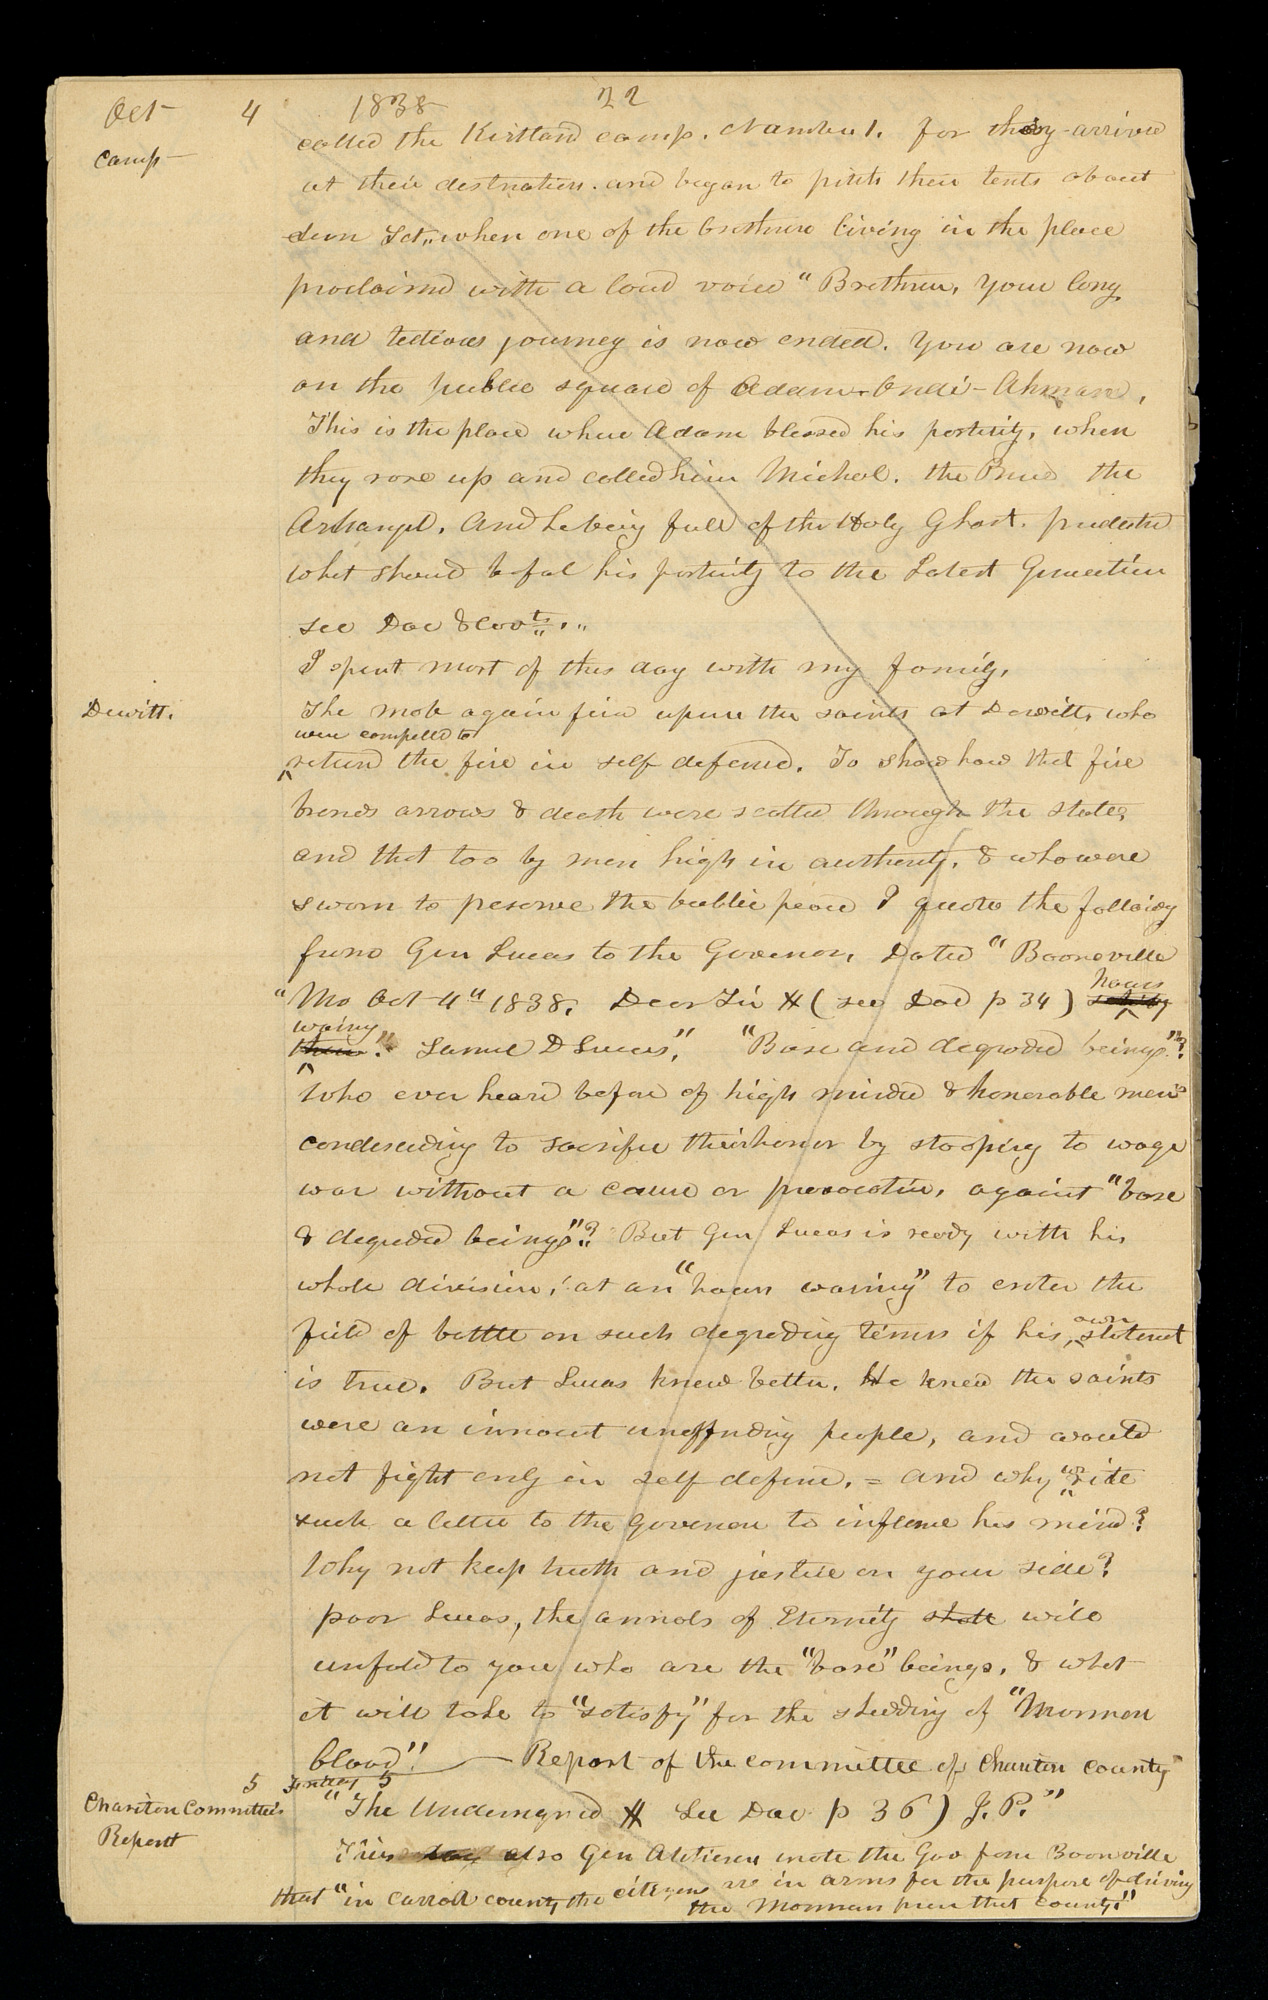 Oct 4 1838 22
Camp
called the Kirtland camp. Number 1. for they arrived
at their destination. and began to pitch their tents about
sun Set., when one of the brethren living in the place
proclaimed with a loud voice "Brethren, your long
and tedious journey is now ended. You are now
on the public square of Adam-Ondi-Ahman,
This is the place where Adam blessed his posterity, when
they rose up and called him Michael. the Prince the
Archangel. And he being full of the Holy Ghost. predicted
what should befal his posterity to the Latest Generation
see Doc & Covts..
I spent most of this day with my family.
Dewitt.
The mob again fired upon the saints at Dewitt, who
were compelled to
return the fire in self defence. To show how that fire
brands arrows & death were scatted through the state,
and that too by men high in authority. & who were
sworn to preserve the public peace I quote the following
from Gen Lucas to the Governor, Dated "Booneville
"Mo Oct 4th 1838. Dear Sir # (see Doc p 34) hours
waring" Samuel D Lucas", "Base and degraded beings."?
Who ever heard before of high minded & honorable men
condesending to sacrifice their honor by stooping to wage
war without a cause or provocation, against "base
& degraded beings"? But Gen Lucas is ready with his
whole division, at an "hours waring" to enter the
field of battle on such degrading terms if his own statement
is true. But Lucas knew better. He knew the saints
were an innocent unoffending people, and would
not fight only in self defence. = and why write
such a letter to the govenor to inflame his mind?
Why not keep truth and justice on your side?
poor Lucas, the annals of Eternity will
unfold to you who are the "base" beings. & what
it will take to "satisfy" for the shedding of "Mormon
blood"! — Report of the committee of Chariton County
5 Friday 5
Chariton Committee's
Report
"The Undersigned # See Doc p 36) J. P."
This day also Gen Atchison wrote the Gov from Boonville
that "in Carroll county the citizens are in arms for the purpose of driving
the Mormons from that county."